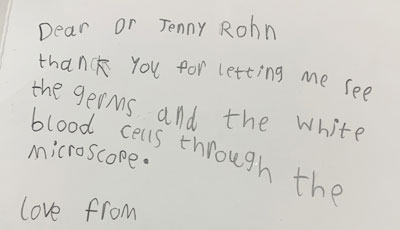 Dear Dr Jenny Rohn
thank you for letting me see
the germs and the white
blood cells through the
microscope.
love from